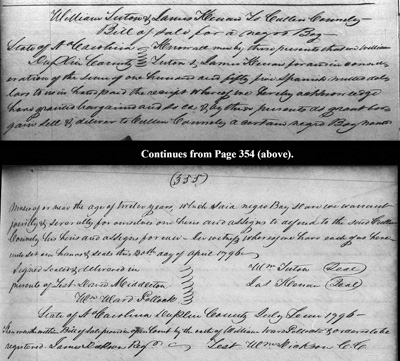 William Suton & James Kenan To Cullen Connerly
Bill of Sale for a negro Boy
State of No Carolina } Know all men by these presents that we William
Duplin County } Suton & James Kenan for and in consid-
eration of the sum of one hundred and fifty five Spanish milled dol-
lars to us in hand paid the receipt whereof we hereby acknowledge
have granted bargained and sold & by these presents do grant bar-
gain sell & deliver to Cullen Connerly a certain negro Boy named
Continues from Page 354 (above).
(355)
Moses of or near the age of twelve years, which said negro Boy Slave we warrant
jointly & severally for ourselves our heirs and assigns to defend to the said Cullen
Connerly his heirs and assigns for ever. In witness whereof we have each of us here-
unto set our hands & seals this 20th day of April 1796
Signed Sealed & delivered in } Wm Suton (Seal)
presents of Test. David Middleton } Jas Kenan (Seal)
Wm Ward Pollock }
State of No Carolina Duplin County July Term 1796
Then was the within Bill of Sale proven in open Court by the oath of William Ward Pollock & ordered to be
registered. James Dickson Regr Test Wm Dickson C.C.